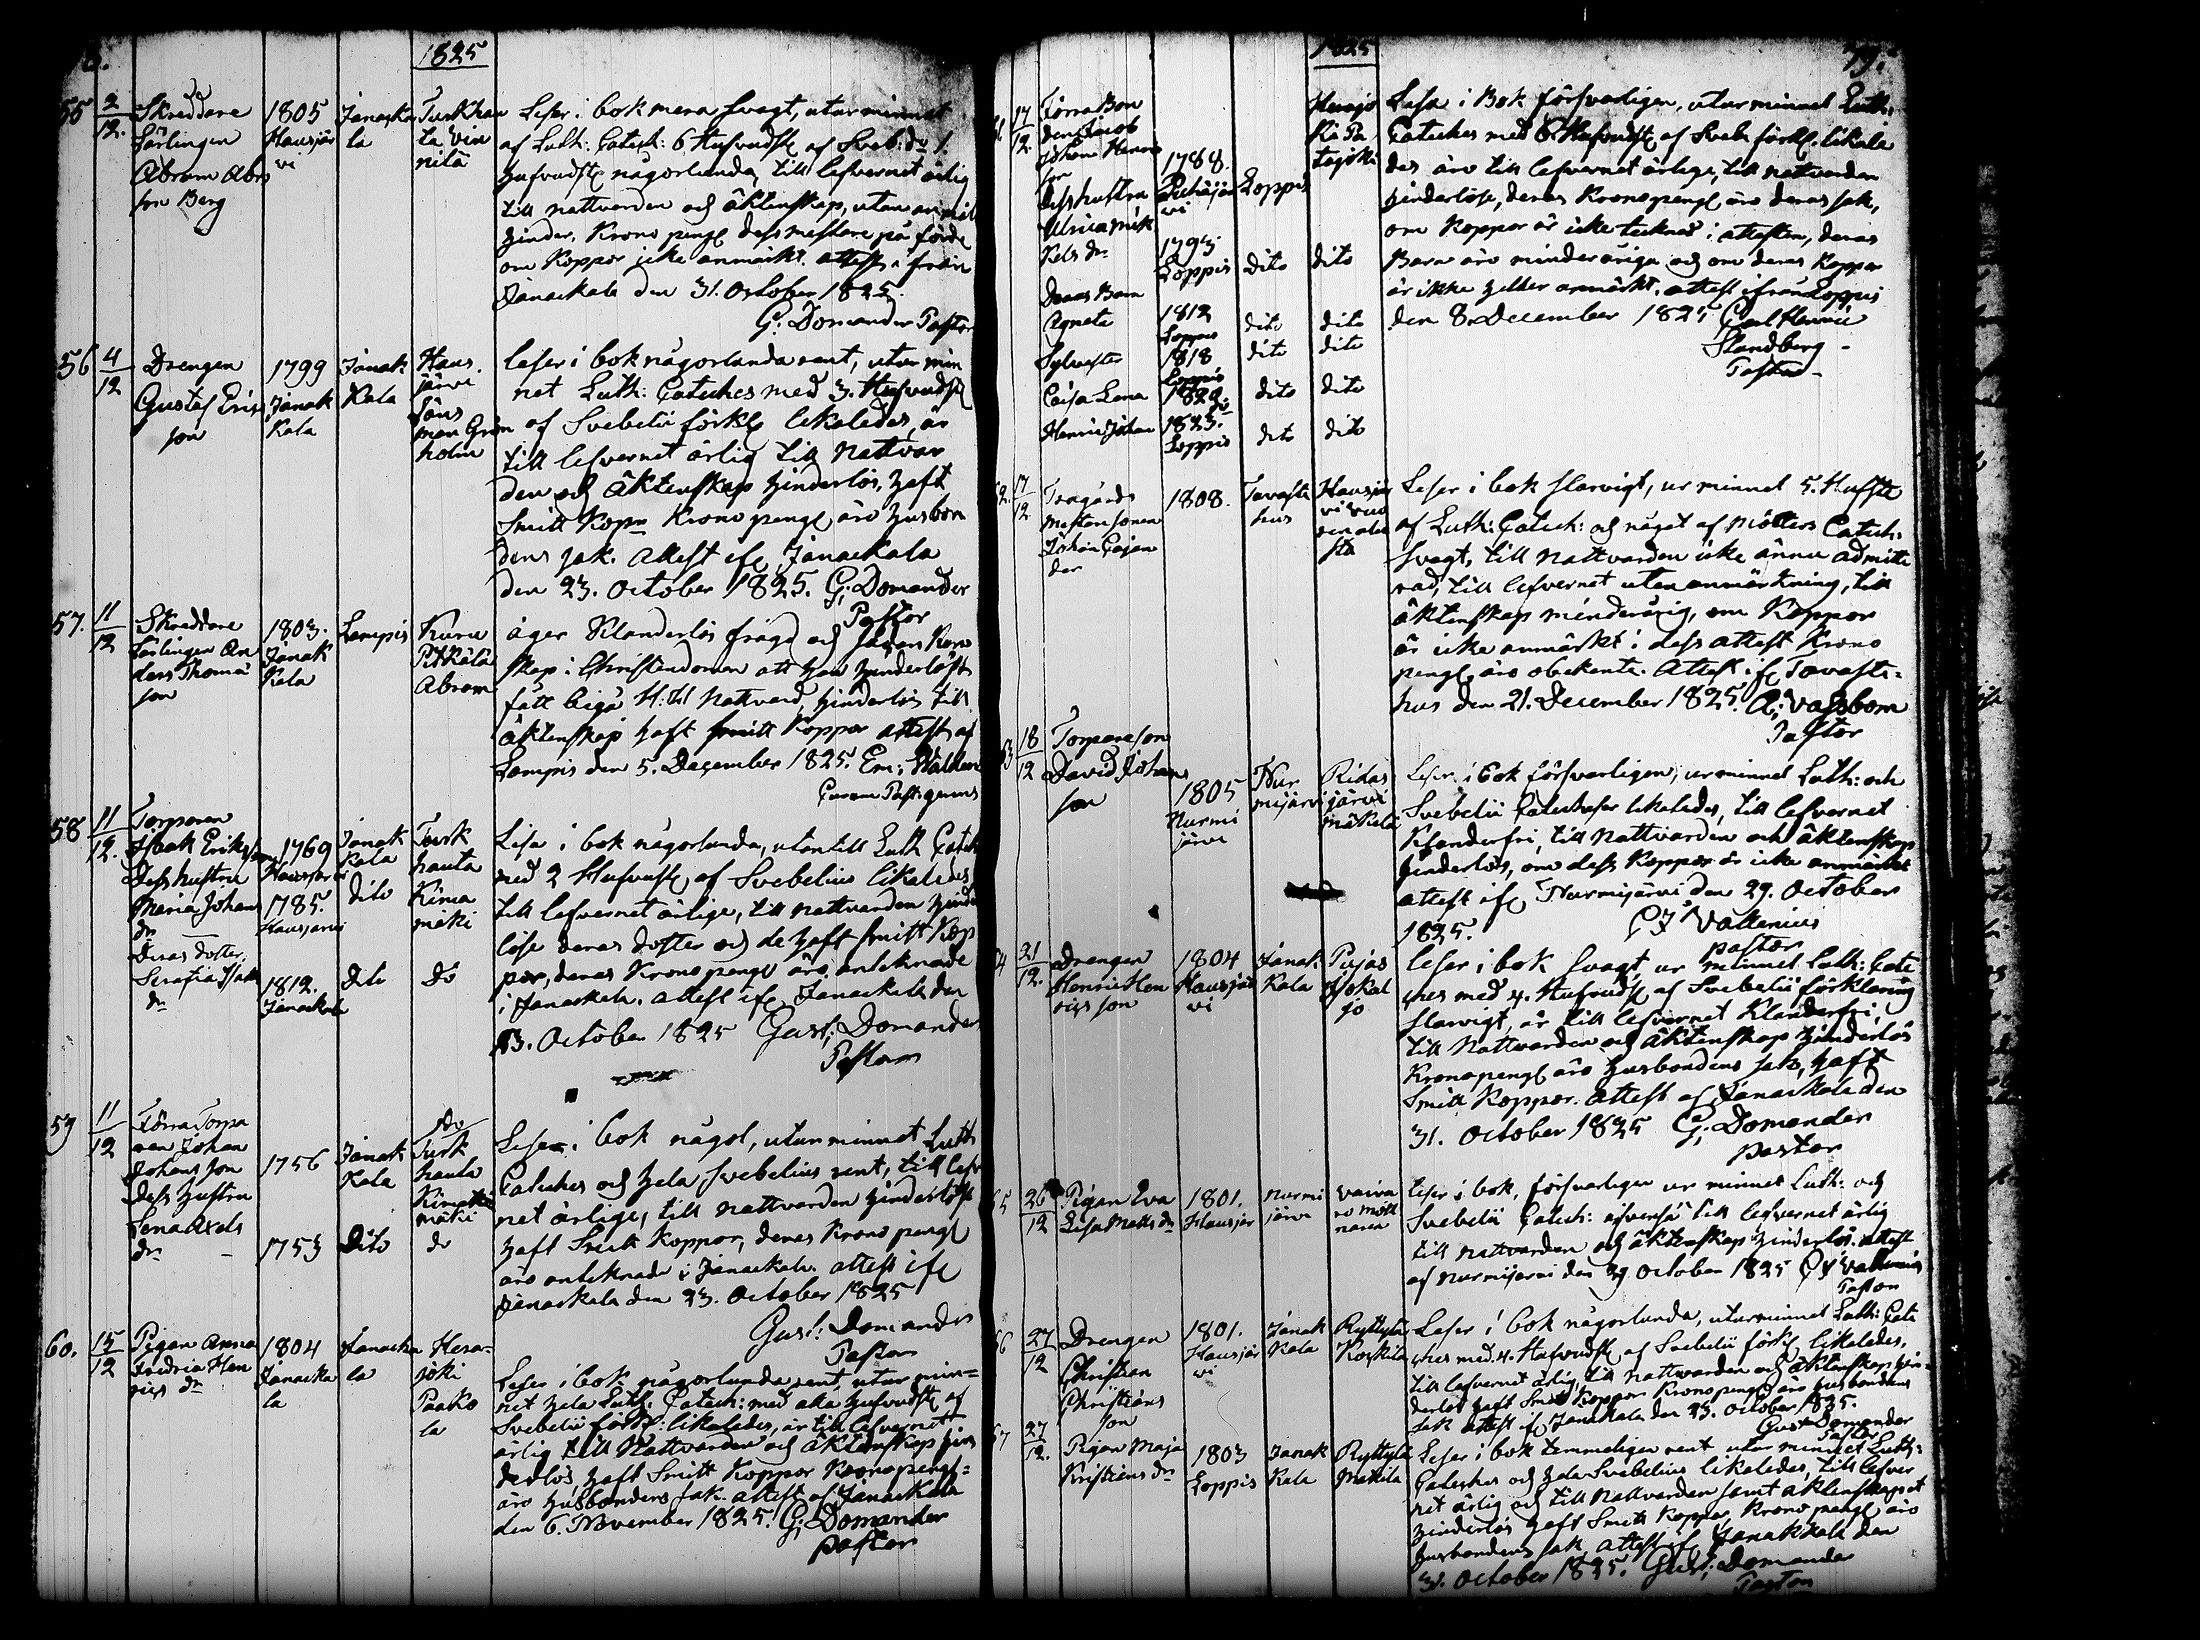 1825
55 2/12. Skreddare Lärlingen Abram Abrs son Berg 1805 Hausjär vi Janacka la Turkhau ta
Leser i bok mera svagt, utur minnet
af Luth: Catech: 6 Hufvudst af Sveb:
hufvudst någorlunda, till lefvernet ärlig
till nattvarden och äktenskap, utan
hinder, Krono peng dess mestare på förde
om Koppor icke anmärkt attest från
Janackala den 31. October 1825.
G: Domander Pastor
56 4/12 Drengen Gustaf Eriks son 1799 Janak Kala Janak Kala Haus järvi Läns man Grön holm
leser i bok någorlunda rent, utur min
net Luth: Cateches med 3. Hufvudst
af Svebelii förkl likaledes, är
till lefvernet ärlig till Nattvar
den och äktenskap hinderlös, haft
Smitt Kopp Krono peng äro husbon
dens sak. Attest if Janackala
den 23. October 1825. G; Domander
Pastor
57. 11/12 Skreddare Lärlingen An ders Thomæ son 1803. Janak Kala Lampis Kuru Pitkälä Abram
äger Klanderlös frägd och
skap i Christendomen att han hinderlöst
fått begå H: H Nattvard, hinderlös till
äktenskap haft smitt Koppor attest af
Lampis den 5. December 1825. Em;
58 11/12. Torparen Isak Eriksson 1769 Hausjärvi Janak Kala Turk hauta
Dess hustru Maria Johans dr 1785. Hausjarvi dito Kima mäki
Deras dotter Serafia Isaks dr 1812. Janackala dito do
Lesa i bok någorlunda, utantill Luth Catech
med 2 Hufvudst af Svebelius likaledes
till lefvernet ärlige, till nattvarden hinder
löse deras dotter och de haft smitt Kop
por, deras Krono peng äro anteknade
i Janackala. attest if Janackala den
23. October 1825 Gust; Domander
Pastor
59 11/12 Förra Torpa ren Johan Johans son 1756 Janak Kala Turk hauta Kima mäki
Dess hustru Lena Axels dr 1753 Dito do
Leser i bok något, utur minnet Luth
Cateches och hela Svebelius rent, till lefv
net ärlige, till nattvarden hinderlöse
haft Smitt Koppor, deras Krono peng
äro anteknade i Janackala. attest if
Janackala den 23. October 1825
Gust: Domander
Pastor
60. 15/12 Pigan Anna Fredrica Hen rics dr 1804 Janacka la Janacka la Hera- joki Paako la
Leser i bok någorlunda rent, utur min=
net hela Luth. Catech: med hufvudst af
Svebelii förkl: likaledes, är till lefvernet
ärlig till Nattvarden och äktenskap hin
derlös, haft Smitt Koppor Kronopeng=
äro husbondens sak. attest af Janackala
den 6. November 1825. G; Domander
pastor
1825
79.
17/12 Förra Bon den Jacob Johan Henrics son 1788. Loppis
Dess hustru Ulrica Mik kels dr 1793 Loppis dito dito
Deras Barn
Agneta 1812 Loppis dito dito
Sylvester 1818 Loppis dito dito
Caisa Lena 1820. dito dito
Henric Johan 1823. Loppis dito dito
Lesa i Bok försvarligen, utur minnet Luth:
Cateches med 6. Hufvudst af Sveb: förkl. likale
des äro till lefvernet ärlige, till nattvarden
hinderlöse, deras Kronopeng äro deras sak,
om Koppor är icke tecknad i attesten, deras
Barn äro minderåriga och om deras Koppor
är ikke heller anmärkt. attest ifrån Loppis
den 8. December 1825 Carl Henric
Standberg
Pastor
17/12 Trägårds mestare sonen Johan Cajan der 1808. Tavaste hus
Leser i bok slarvigt, ur minnet 5. Hufste
af Luth: Catech: och något af Möllers Catech:
svagt, till Nattvarden icke ännu admitte
rad, till lefvernet utan anmärkning, till
äktenskap minderårig, om Koppor
är icke anmärkt i dess attest Krono
peng äro obekante. Attest if Tavaste=
hus den 21. December 1825.
Pastor
18/12 Torpare son David Johans son 1805 Nurmi järvi Nur mijärvi Ridas järvi Mäkelä
Leser i bok försvarligen, ur minnet Luth: och
Svebelii Catecheser likaledes, till lefvernet
Klanderfri, till Nattvarden och äktenskap
hinderlös, om dess Koppor är icke anmärkt
attest if Nurmijärvi den 29. October
1825. C J Vallenius
pastor
21/12. Drengen Henric Hen rics son 1804 Hausjär vi Janak Kala
leser i bok svagt, ur minnet Luth: Cate
ches med 4. Hufvudst af Svebelii förklaring
slarvigt, är till lefvernet Klanderfri,
till Nattvarden och äktenskap hinderlös
Kronopeng äro husbondens sak, haft
Smitt Koppor. attest af Janackala den
31. October 1825 G; Domander
pastor
26/12 Pigan Eva Lisa Matts dr 1801. Hausjär Nurmi järvi
leser i bok, försvarligen ur minnet Luth: och
Svebelii Catech: äfvenså till lefvernet ärlig
till nattvarden och äktenskap hinderlös. attest
af Nurmijärvi den 29 October 1825 C J Vallenius
Pastor
27/12 Drengen Christian Christians son 1801. Hausjär vi Janak Kala Ryttylä Koskila
Leser i bok någorlunda, utur minnet Luth: Cate
ches med 4. Hufvudst af Svebelii förkl likaledes,
till lefvernet ärlig, till nattvarden och äktenskap hin-
derlös haft Smitt Koppor Kronopeng äro husbondens
sak attest if Janackala den 23. October 1825.
Gust Domander
Pastor
27/12. Pigan Maja Kristiens dr 1803 Loppis Janak Kala Ryttylä Mäkilä
Leser i bok temmeligen rent utur minnet Luth:
Cateches och hela Svebelius likaledes, till lefver
net ärlig och till nattvarden samt äktenskapet
hinderlös haft Smitt Koppor, Krono peng äro
husbondens sak, attest if Janakkala den
31. October 1825. Gust; Domander
Pastor